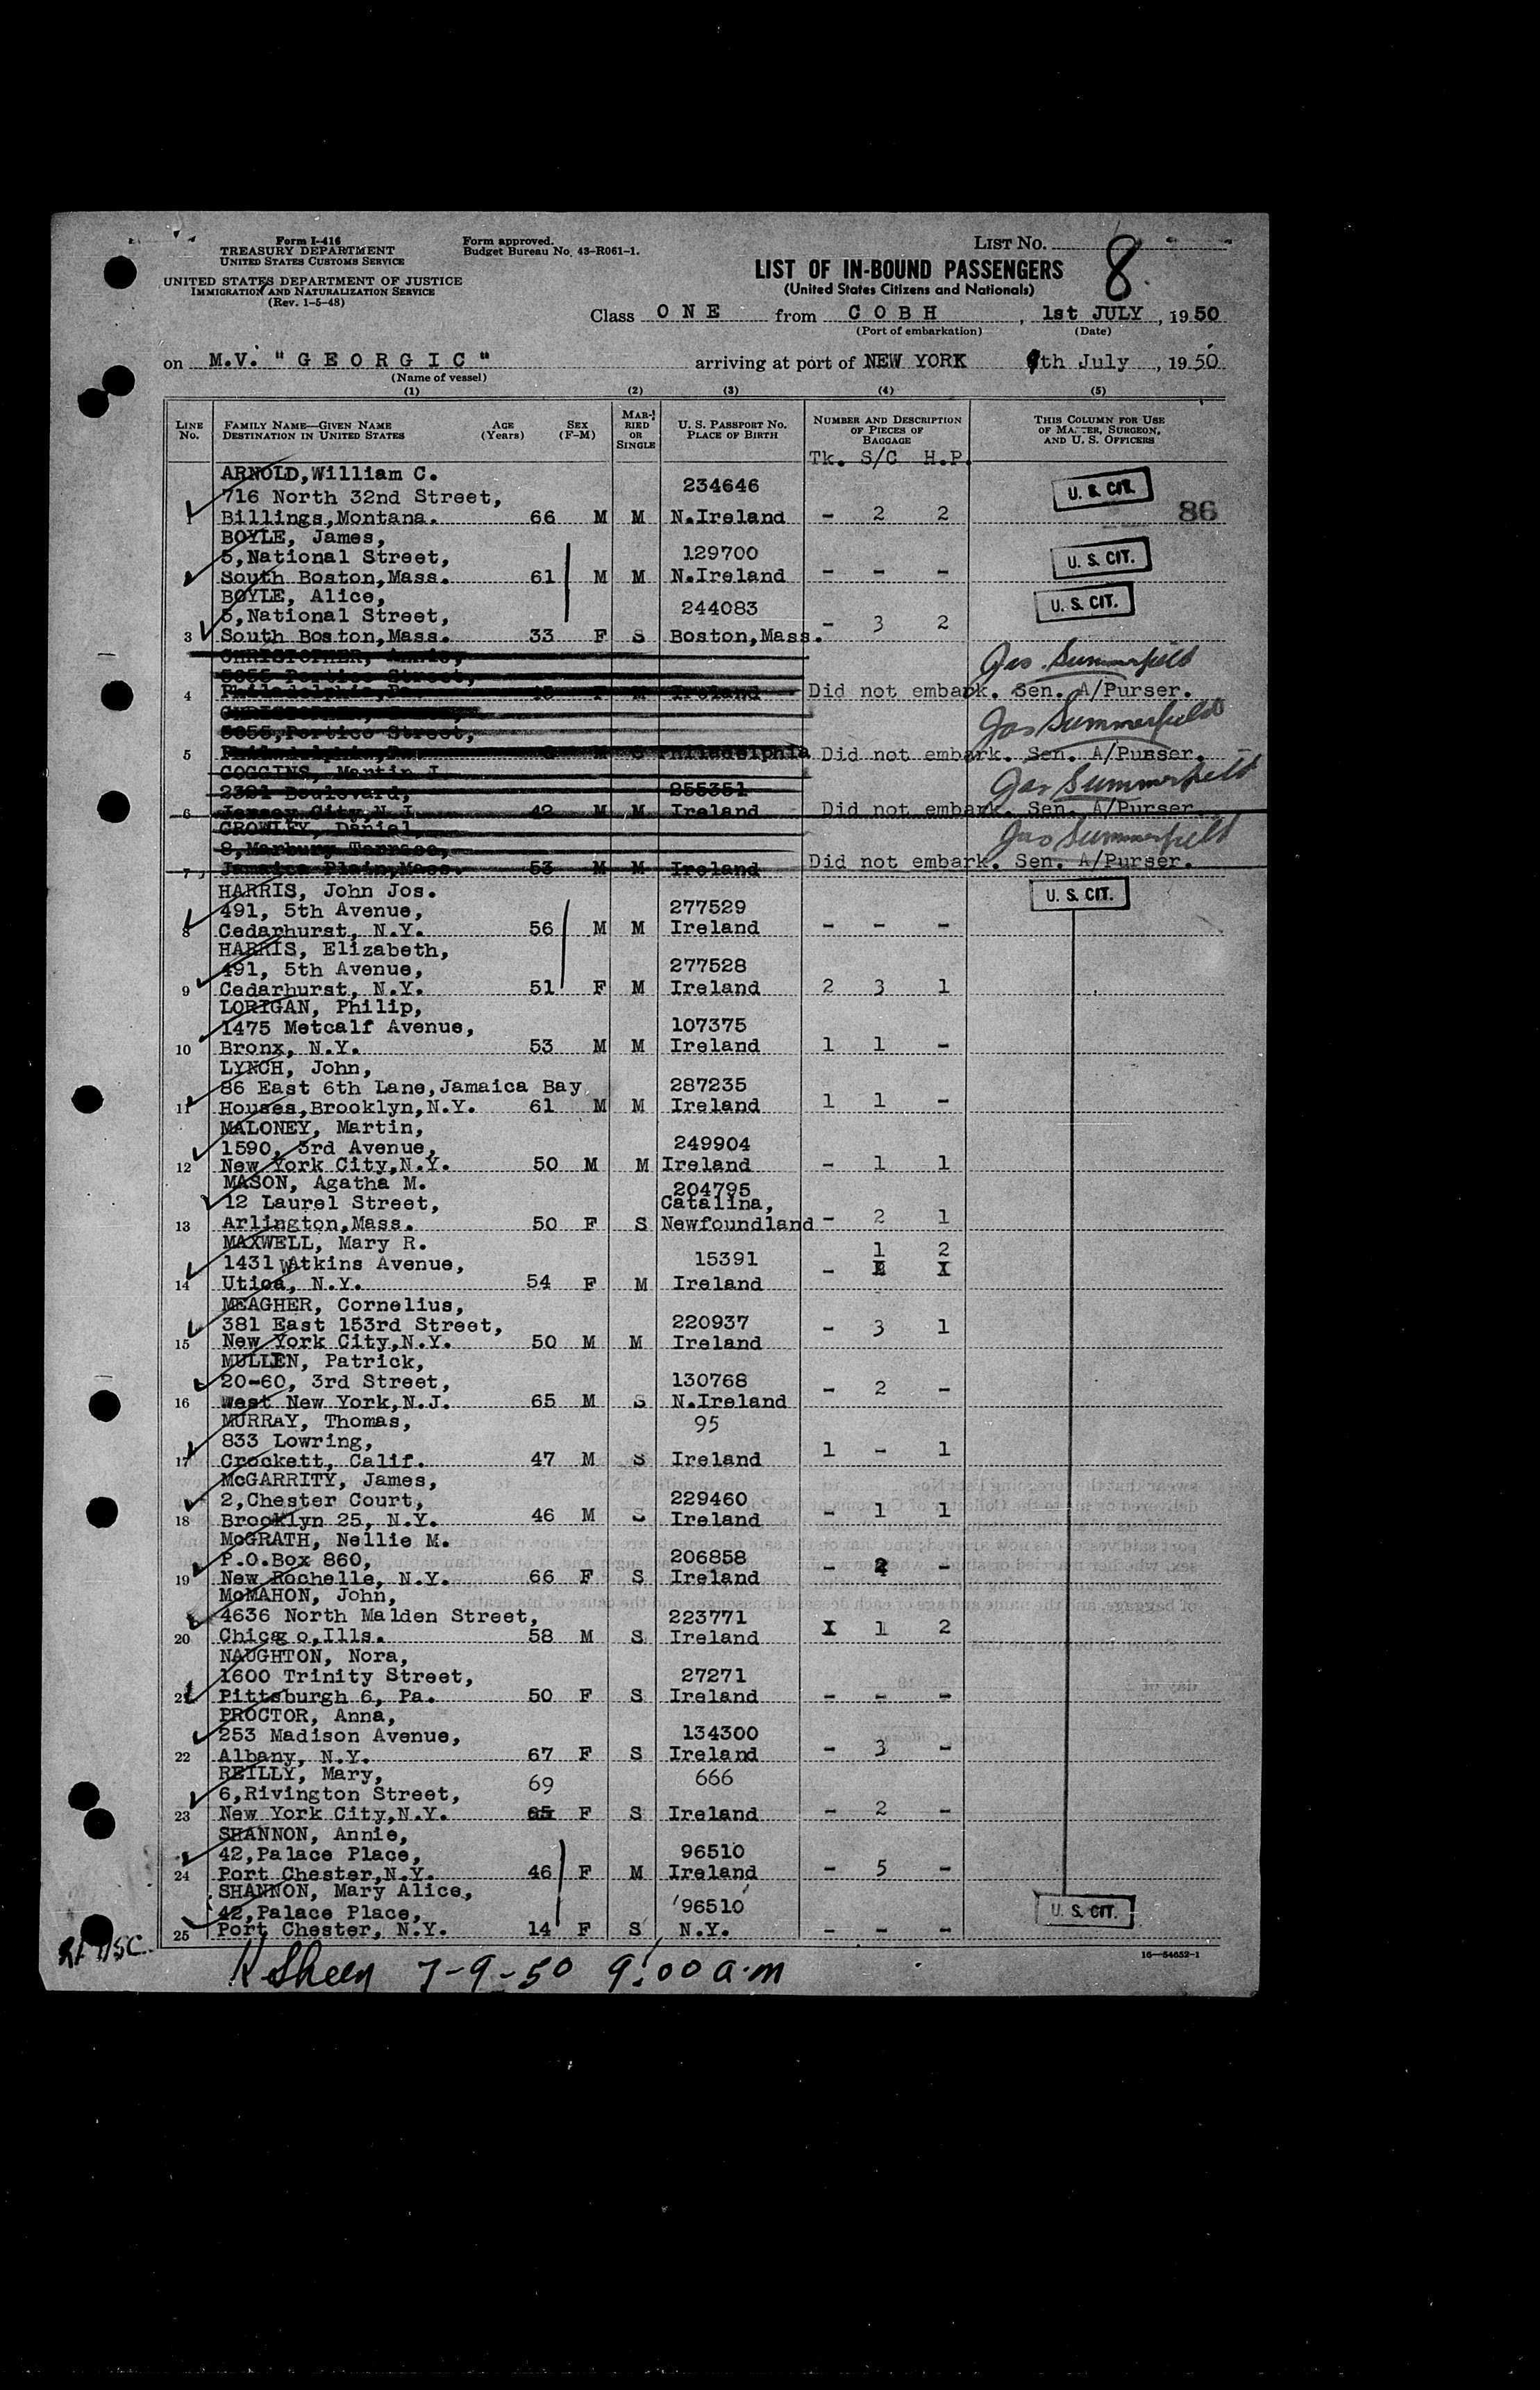 Form I-416
TREASURY DEPARTMENT
UNITED STATES CUSTOMS SERVICE
UNITED STATES DEPARTMENT OF JUSTICE
IMMIGRATION AND NATURALIZATION SERVICE
(Rev. 1-5-48)
Form approved.
Budget Bureau No. 43-R061-1.
LIST NO. 8
LIST OF IN-BOUND PASSENGERS
(United States Citizens and Nationals)
Class ONE from COBH, 1st JULY, 1950
(Port of embarkation) (Date)
on M.V. "GEORGIC" arriving at port of NEW YORK 9th July, 1950
(Name of vessel)
(1) (2) (3) (4) (5)
LINE No.
FAMILY NAME—GIVEN NAME
DESTINATION IN UNITED STATES
AGE (Years)
SEX (F-M)
MARRIED OR SINGLE
U. S. PASSPORT NO.
PLACE OF BIRTH
NUMBER AND DESCRIPTION OF PIECES OF BAGGAGE
THIS COLUMN FOR USE OF MASTER, SURGEON, AND U. S. OFFICERS
Tk. S/C H.P.
ARNOLD, William C.
716 North 32nd Street, 234646 U. S. CIT.
1 Billings, Montana. 66 M M N.Ireland - 2 2 86
BOYLE, James,
5, National Street, 129700 U. S. CIT.
South Boston, Mass. 61 M M N.Ireland - - -
BOYLE, Alice,
5, National Street, 244083 U. S. CIT.
3 South Boston, Mass. 33 F S Boston, Mass. - 3 2
CHRISTOPHER, Annie,
5055 Portico Street, Jas. Summerfield
4 Philadelphia, Pa. F M Ireland Did not embark. Sen. A/Purser.
Jas Summerfield
5055, Portico Street,
5 M S Philadelphia Did not embark. Sen. A/Purser.
COGGINS, Martin J.
2391 Boulevard, 255351 Jas Summerfield
6 Jersey City, N.J. 42 M M Ireland Did not embark. Sen. A/Purser
CROWLEY, Daniel,
8, Marbury Terrace, Jas Summerfield
7 Jamaica Plain, Mass. 53 M M Ireland Did not embark. Sen. A/Purser.
HARRIS, John Jos. U. S. CIT.
491, 5th Avenue, 277529
8 Cedarhurst, N.Y. 56 M M Ireland - - -
HARRIS, Elizabeth,
491, 5th Avenue, 277528
9 Cedarhurst, N.Y. 51 F M Ireland 2 3 1
LORIGAN, Philip,
1475 Metcalf Avenue, 107375
10 Bronx, N.Y. 53 M M Ireland 1 1 -
LYNCH, John,
86 East 6th Lane, Jamaica Bay 287235
11 Houses, Brooklyn, N.Y. 61 M M Ireland 1 1 -
MALONEY, Martin,
1590, 3rd Avenue, 249904
12 New York City, N.Y. 50 M M Ireland - 1 1
MASON, Agatha M. 204795
12 Laurel Street, Catalina,
13 Arlington, Mass. 50 F S Newfoundland - 2 1
MAXWELL, Mary R. 1 2
1431 Watkins Avenue, 15391
14 Utica, N.Y. 54 F M Ireland -
MEAGHER, Cornelius,
381 East 153rd Street, 220937
15 New York City, N.Y. 50 M M Ireland - 3 1
MULLEN, Patrick,
20-60, 3rd Street, 130768
16 West New York, N.J. 65 M S N.Ireland - 2 -
MURRAY, Thomas, 95
833 Lowring,
17 Crockett, Calif. 47 M S Ireland 1 - 1
McGARRITY, James,
2, Chester Court, 229460
18 Brooklyn 25, N.Y. 46 M S Ireland - 1 1
McGRATH, Nellie M.
P.O.Box 860, 206858
19 New Rochelle, N.Y. 66 F S Ireland - -
McMAHON, John,
4636 North Malden Street, 223771
20 Chicago, Ills. 58 M S Ireland 1 2
NAUGHTON, Nora,
1600 Trinity Street, 27271
21 Pittsburgh 6, Pa. 50 F S Ireland - - -
PROCTOR, Anna,
253 Madison Avenue, 134300
22 Albany, N.Y. 67 F S Ireland - 3 -
REILLY, Mary, 666
6, Rivington Street, 69
23 New York City, N.Y. 65 F S Ireland - 2 -
SHANNON, Annie,
42, Palace Place, 96510
24 Port Chester, N.Y. 46 F M Ireland - 5 -
SHANNON, Mary Alice,
42, Palace Place, 96510 U. S. CIT.
25 Port Chester, N.Y. 14 F S N.Y. - - -
16—54652-1
K Sheen 7-9-50 9:00 a.m